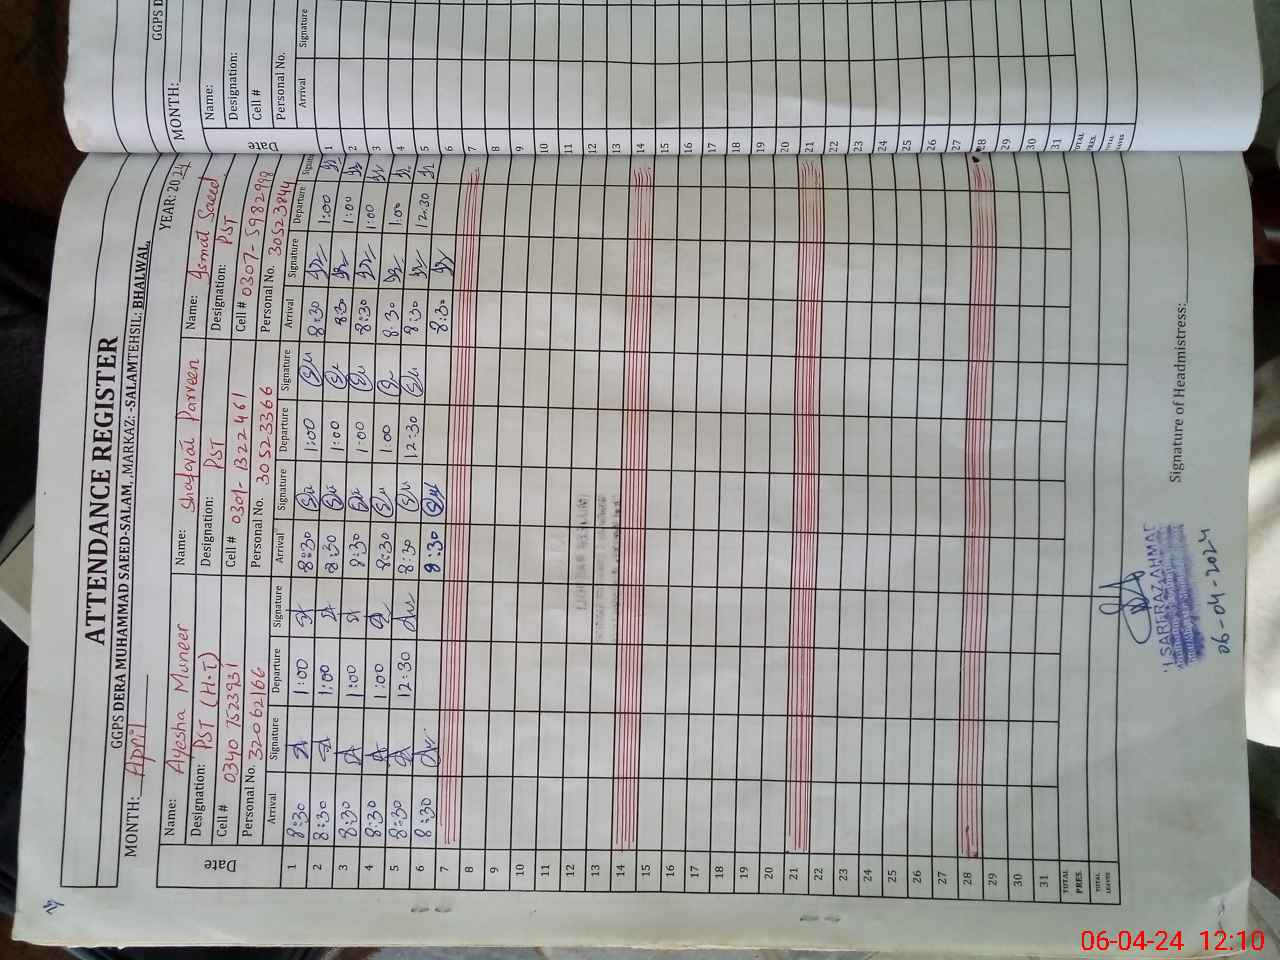 ATTENDANCE REGISTER
GGPS DERA MUHAMMAD SAEED-SALAM, MARKAZ: -SALAMTEHSIL: BHALWAL.
MONTH: April YEAR: 2024
Name: Ayesha Muneer Name: Shafqat Parveen Name: Ismat Saeed
Designation: PST (H.T) Designation: PST Designation: PST
Cell # 0340 7523931 Cell # 0301-1322461 Cell # 0307-5982998
Personal No. 32062166 Personal No. 30523366 Personal No. 30523844
Date Arrival Signature Departure Signature Arrival Signature Departure Signature Arrival Signature Departure Signature
1 8:30 1:00 8:30 1:00 8:30 1:00
2 8:30 1:00 8:30 1:00 8:30 1:00
3 8:30 1:00 8:30 1:00 8:30 1:00
4 8:30 1:00 8:30 1:00 8:30 1:00
5 8:30 12:30 8:30 12:30 8:30 12.30
6 8:30 8:30 8:30
7
8
9
10
11
12
13
14
15
16
17
18
19
20
21
22
23
24
25
26
27
28
29
30
31
TOTAL PRES.
TOTAL LEAVES
SARFRAZ AHMAT
06-04-2024
Signature of Headmistress:
GGPS D
MONTH:
Name:
Designation:
Cell #
Personal No.
Date Arrival Signature
1
2
3
4
5
6
7
8
9
10
11
12
13
14
15
16
17
18
19
20
21
22
23
24
25
26
27
28
29
30
31
TOTAL PRES.
TOTAL LEAVES
06-04-24 12:10